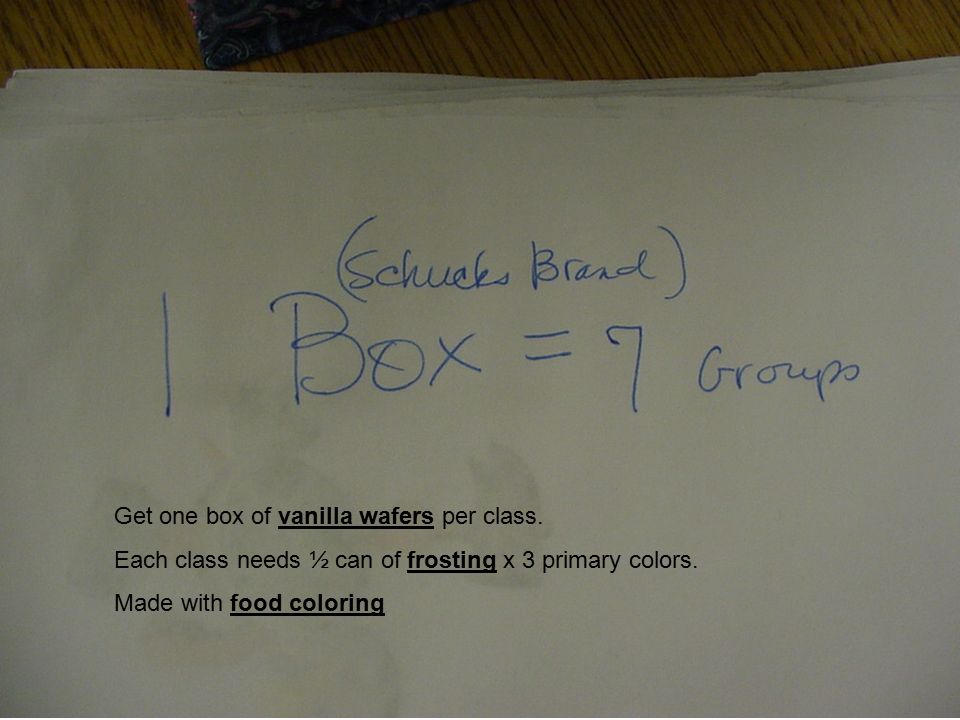 (Schucks Brand)
1 Box = 7 Groups
Get one box of vanilla wafers per class.
Each class needs ½ can of frosting x 3 primary colors.
Made with food coloring